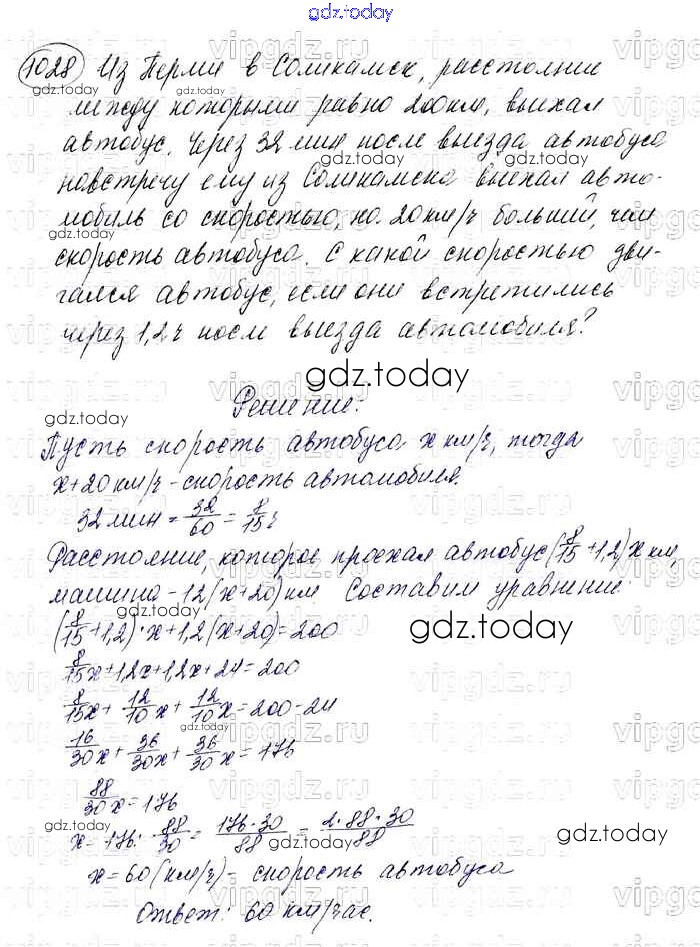 gdz.today
1028 Из Перми в Соликамск, расстояние
между которыми равно 200км, выехал
автобус. Через 32 мин после выезда автобуса
навстречу ему из Соликамска выехал авто-
мобиль со скоростью, на 20 км/ч больший, чем
скорость автобуса. С какой скоростью дви-
гался автобус, если они встретились
через 1,2 ч после выезда автомобиля?
Решение:
Пусть скорость автобуса x км/ч, тогда
x+20 км/ч - скорость автомобиля.
32 мин = 32/60 = 8/15 ч
Расстояние, которое проехал автобус (8/15 + 1,2) x км,
машина - 12 (x+20) км Составим уравнение:
(8/15 + 1,2) · x + 1,2 (x+20) = 200
8/15x + 1,2x + 1,2x + 24 = 200
8/15x + 12/10x + 12/10x = 200 - 24
16/30x + 36/30x + 36/30x = 176
88/30x = 176
x = 176 : 88/30 = 176·30/88 = 2·88·30/88
x = 60 (км/ч) - скорость автобуса
Ответ: 60 км/час.